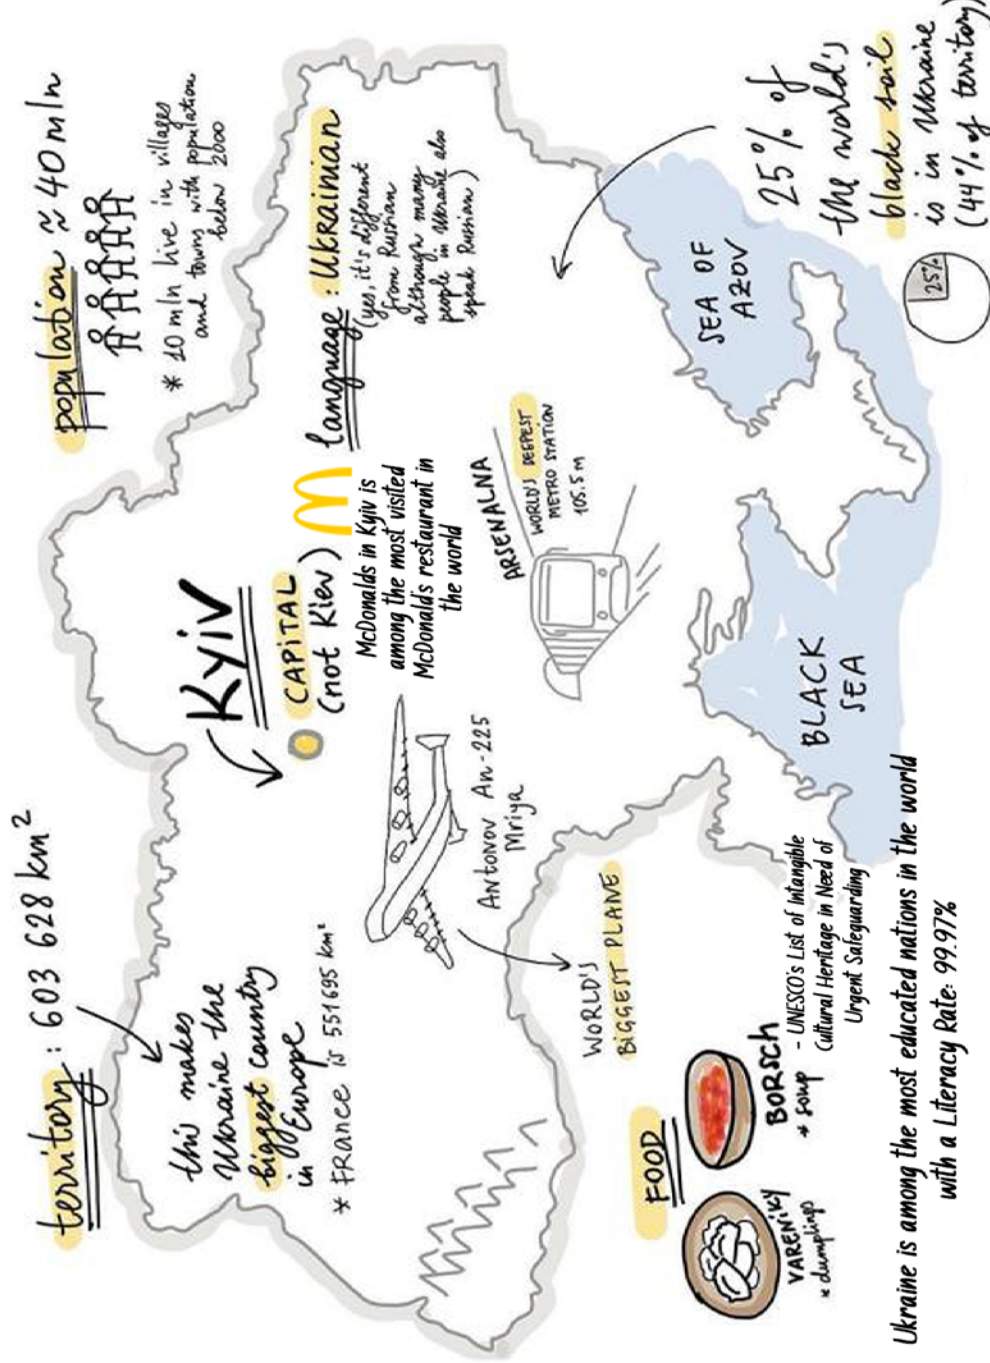 territory: 603 628 km²
this makes
Ukraine the
biggest country
in Europe
* FRance is 551695 km²
population ≈ 40 mln
* 10 mln live in villages
and towns with population
below 2000
Kyiv
CAPiTAL
(not Kiev)
McDonalds in Kyiv is
among the most visited
McDonald's restaurant in
the world
language: Ukrainian
(yes, it's different
from Russian
although many
people in Ukraine also
speak Russian)
ANTONOV An-225
Mriya
WORLD'S
BiGGEST PLANE
ARSENALNA
WORLD'S DEEPEST
METRO STATION
105.5 m
SEA OF
AZOV
BLACK
SEA
25% of
the world's
black soil
is in Ukraine
(44% of territory)
25%
FOOD
VARENiKY
* dumplings
BORSCH
* soup
- UNESCO's List of Intangible
Cultural Heritage in Need of
Urgent Safeguarding
Ukraine is among the most educated nations in the world
with a Literacy Rate: 99.97%